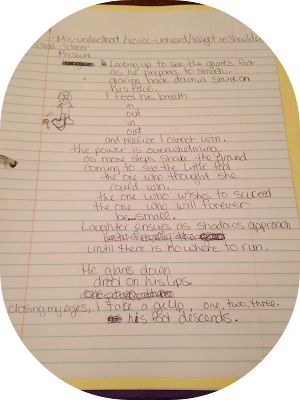 Mis-understood / voice-unheard / weight on shoulders
Pressure
Looking up to see the giants foot
as he prepares to smash.
glaring back down, a smirk on
his face.
I feel his breath
in
out
in
out
and realize I cannot win.
the power is overwhelming
as more steps shake the ground
coming to see the little kid
the one who thought she
could win.
the one who wishes to succeed
the one who will forever
be... small.
Laughter ensues as shadows approach
until there is no where to run.
He glares down
drool on his lips.
closing my eyes, I take a gulp, one, two, three.
his foot descends.